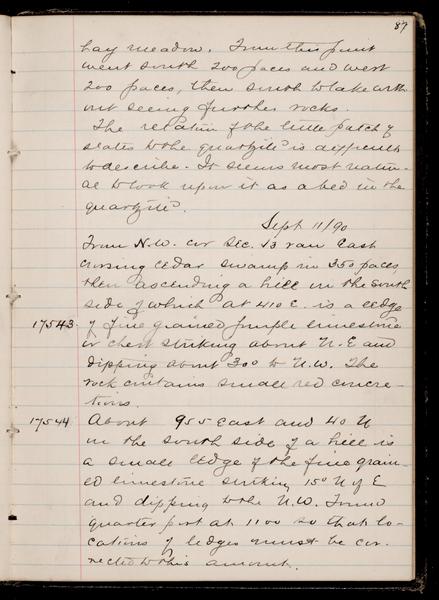 87
hay meadow. From this point
went south 200 paces and west
200 paces, then south to lake with
out seeing further rocks.
The relation of the little patch of
slates to the quartzite is difficult
to describe. It seems most natur-
al to look upon it as a bed in the
quartzite.
Sept 11/90
From N.W. cor Sec. 13 ran East
crossing cedar swamp in 350 paces,
then ascending a hill on the south
side of which at 410 E. is a ledge
17543. of fine grained purple limestone
or chert striking about N-E and
dipping about 30° to N.W. The
rock contains small red concre-
tions.
17544. About 955 East and 40 N
on the south side of a hill is
a small ledge of the fine grain-
ed limestone striking 15° N of E
and dipping to the N.W. Found
quarter post at 1100 so that lo-
cations of ledges must be cor-
rected to this amount.